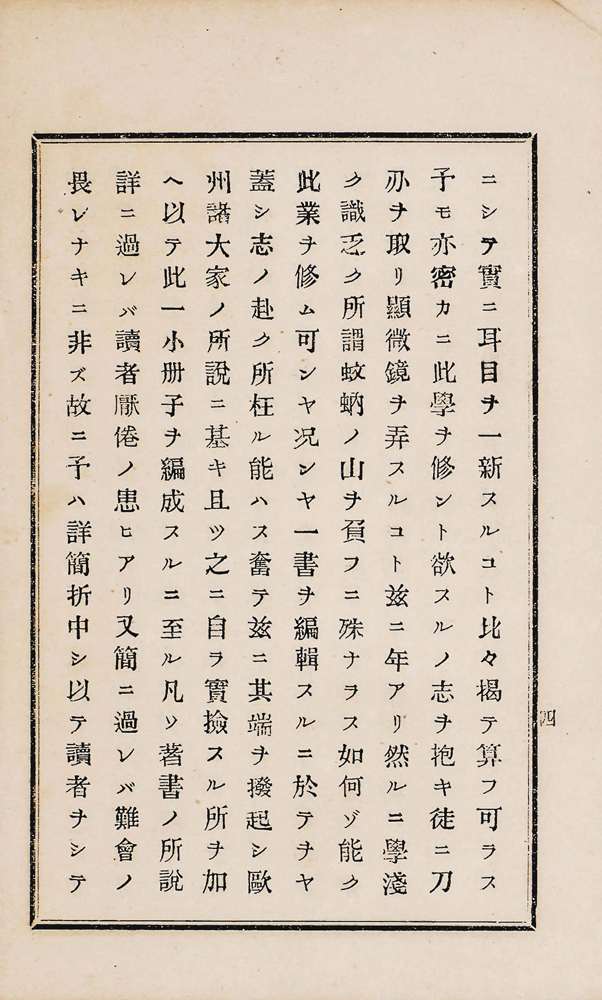 ニシテ實ニ耳目ヲ一新スルコト比々揭テ算フ可ラス
予モ亦密カニ此學ヲ修ント欲スルノ志ヲ抱キ徒ニ刀
刅ヲ取リ顯微鏡ヲ弄スルコト玆ニ年アリ然ルニ學淺
ク識乏ク所謂蚊蚋ノ山ヲ負フニ殊ナラス如何ゾ能ク
此業ヲ修ム可ンヤ况ンヤ一書ヲ編輯スルニ於テヲヤ
蓋シ志ノ赴ク所枉ル能ハス奮テ玆ニ其端ヲ撥起シ歐
州諸大家ノ所說ニ基キ且ツ之ニ自ラ實撿スル所ヲ加
ヘ以テ此一小册子ヲ編成スルニ至ル凡ソ著書ノ所說
詳ニ過レバ讀者厭倦ノ患ヒアリ又簡ニ過レバ難會ノ
畏レナキニ非ズ故ニ予ハ詳簡折中シ以テ讀者ヲシテ
四